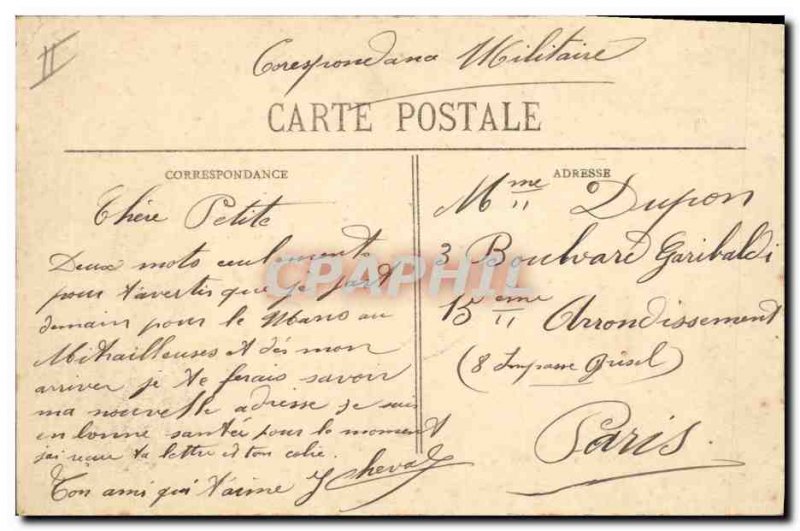 II
Corespondana Militaire
CARTE POSTALE
CORRESPONDANCE
Chère Petite
Deux mots ceulement
pour t'avertir que je part
demain pour le Mans au
Mitrailleuses et dès mon
arriver je te ferais savoir
ma nouvelle adresse je suis
en bonne santée pour le moment
j'ai reçu ta lettre et ton colie
Ton ami qui t'aime J Cheval
ADRESSE
Mme Dupon
3 Boulvard Garibaldi
15eme Arrondissement
(8 Impasse Grisel)
Paris.
CPAPHIL